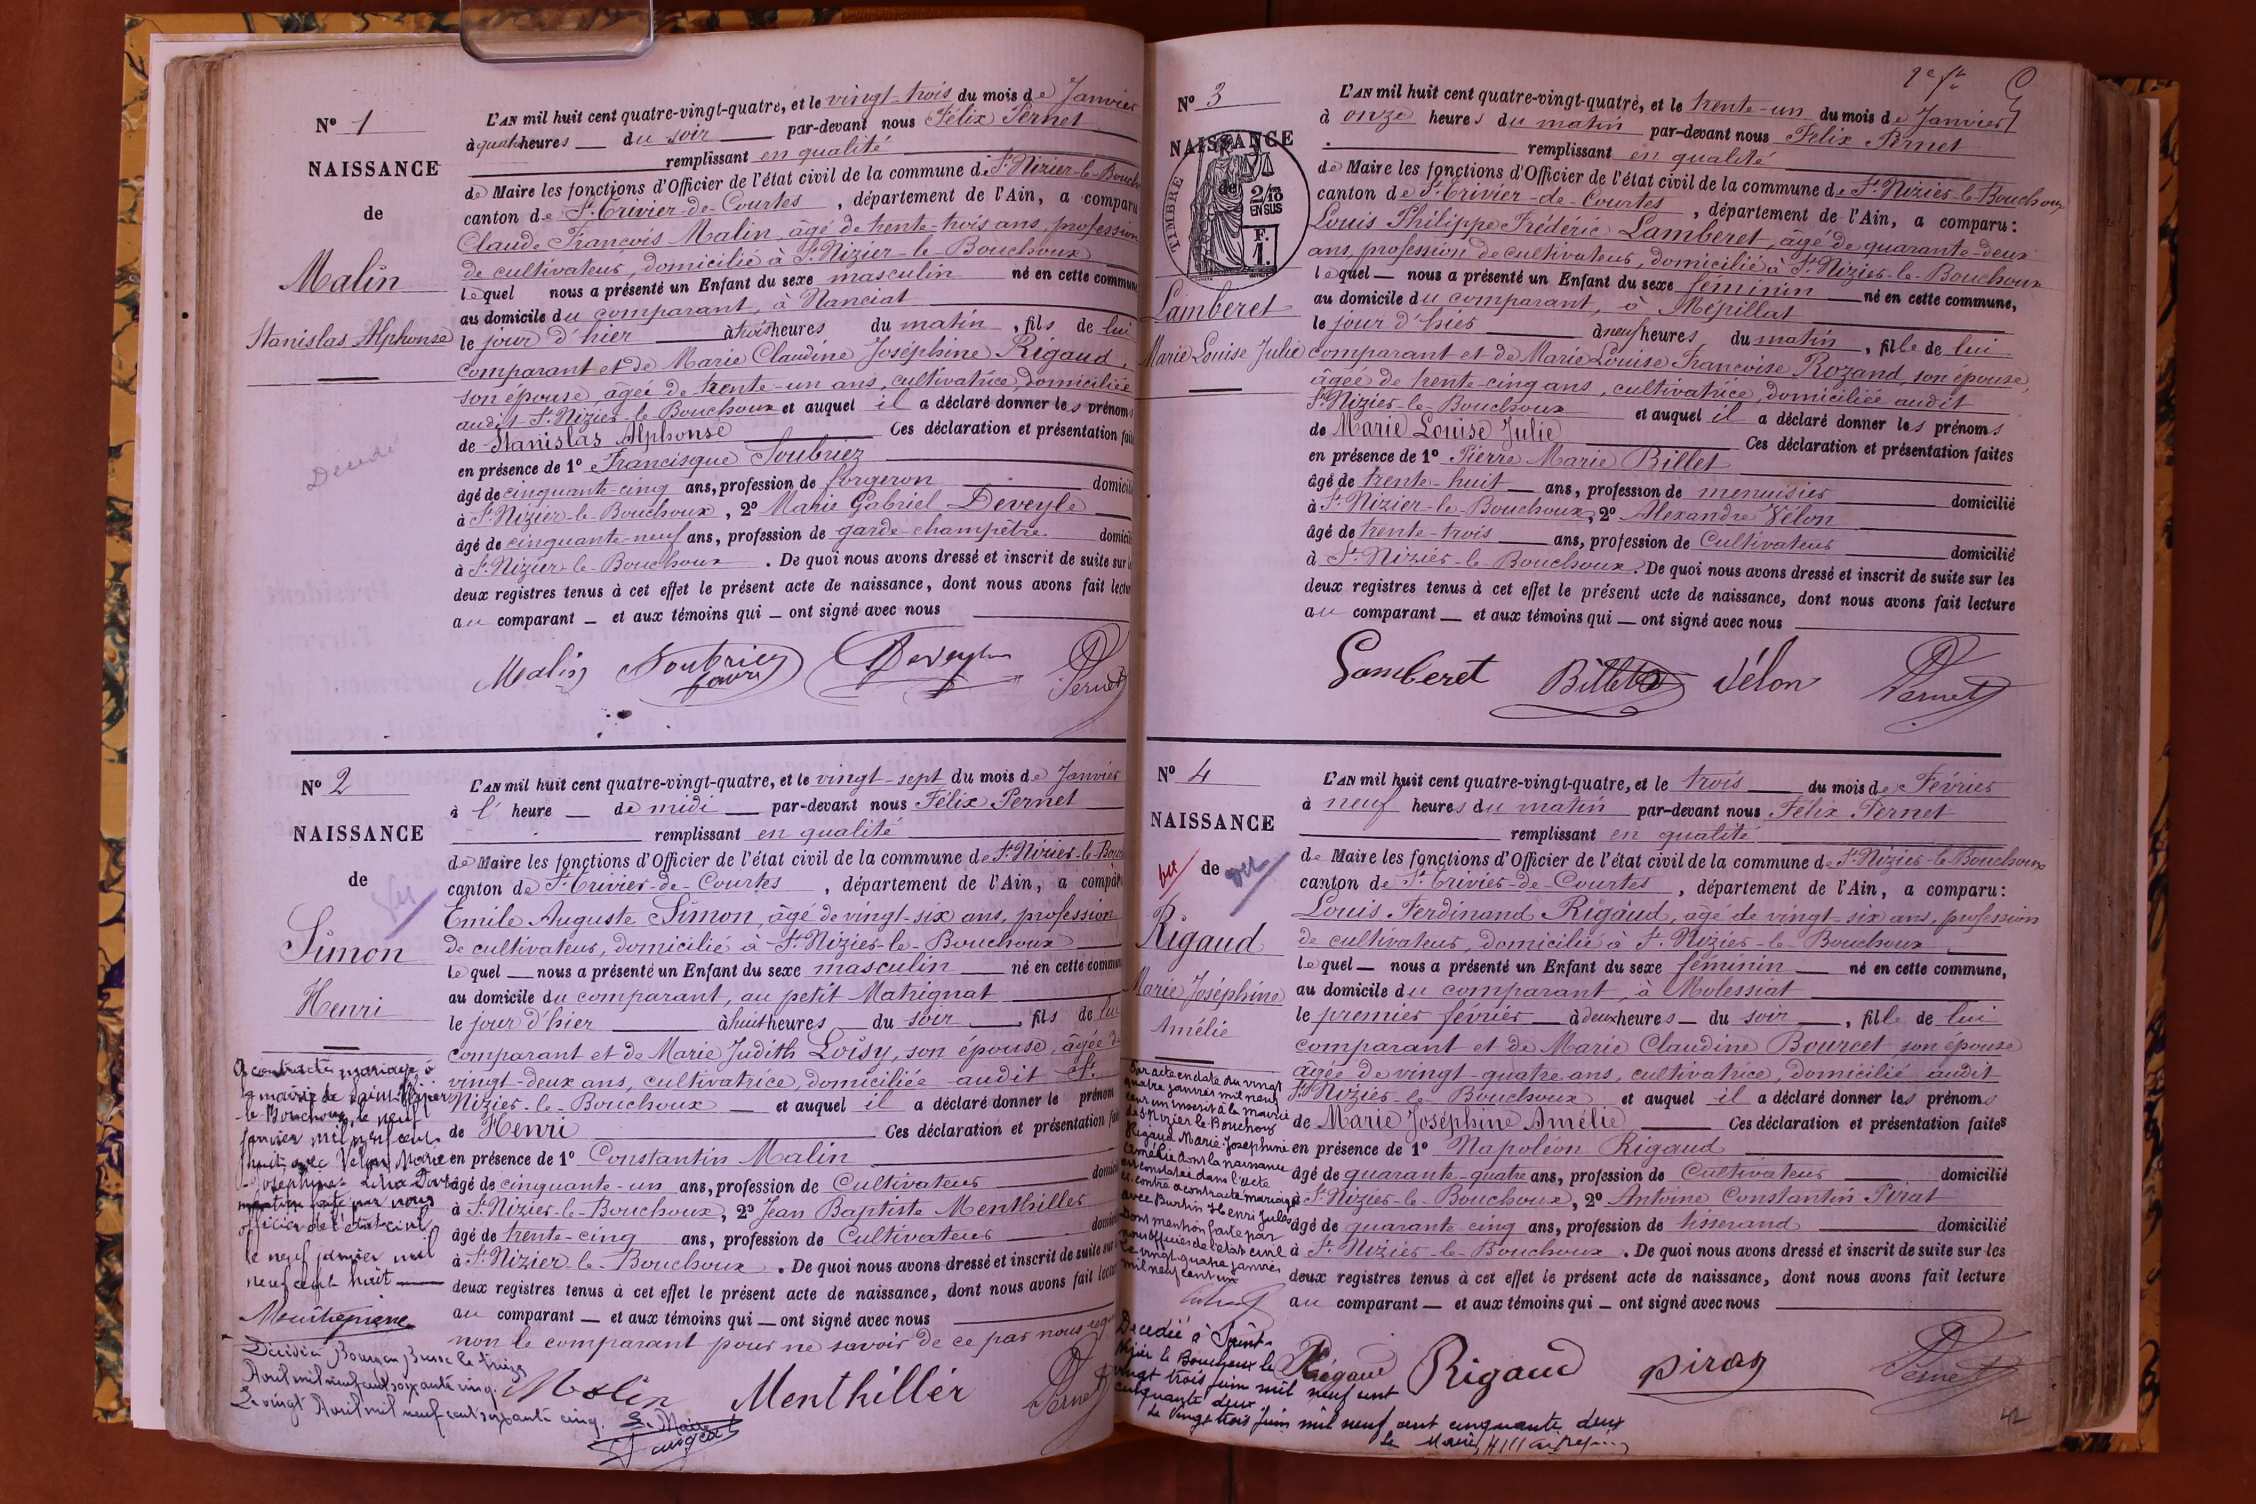 N° 1
NAISSANCE
de
Malin
Stanislas Alphonse
Décédé
L'AN mil huit cent quatre-vingt-quatre, et le vingt-trois du mois de Janvier
à quatre heures du soir par-devant nous Félix Pernet
remplissant en qualité
de Maire les fonctions d'Officier de l'état civil de la commune de St Nizier-le-Bouch
canton de St Trivier-de-Courtes, département de l'Ain, a comparu
Claude François Malin, âgé de trente-trois ans, profession
de cultivateur, domicilié à St Nizier-le-Bouchoux
lequel nous a présenté un Enfant du sexe masculin né en cette commune
au domicile du comparant, à Nanciat
le jour d'hier à trois heures du matin, fils de lui
comparant et de Marie Claudine Joséphine Rigaud,
son épouse, âgée de trente-un ans, cultivatrice, domiciliée
audit St Nizier-le-Bouchoux et auquel il a déclaré donner les prénoms
de Stanislas Alphonse Ces déclaration et présentation fait
en présence de 1° Francisque Soubriez
âgé de cinquante-cinq ans, profession de forgeron domicilié
à St Nizier-le-Bouchoux, 2° Marie Gabriel Deveyle
âgé de cinquante-neuf ans, profession de garde-champêtre domicili
à St Nizier-le-Bouchoux. De quoi nous avons dressé et inscrit de suite sur l
deux registres tenus à cet effet le présent acte de naissance, dont nous avons fait lectu
au comparant et aux témoins qui ont signé avec nous
Malin Soubriez Deveyle Pernet
N° 2
NAISSANCE
de
vu
Simon
Henri
L'AN mil huit cent quatre-vingt-quatre, et le vingt-sept du mois de Janvier
à l' heure de midi par-devant nous Félix Pernet
remplissant en qualité
de Maire les fonctions d'Officier de l'état civil de la commune de St Nizier-le-Bouc
canton de St Trivier-de-Courtes, département de l'Ain, a compar
Emile Auguste Simon, âgé de vingt-six ans, profession
de cultivateur, domicilié à St Nizier-le-Bouchoux
lequel nous a présenté un Enfant du sexe masculin né en cette commun
au domicile du comparant, au petit Matrignat
le jour d'hier à huit heures du soir, fils de lui
comparant et de Marie Judith Loisy, son épouse, âgée de
vingt-deux ans, cultivatrice, domiciliée audit St
Nizier-le-Bouchoux et auquel il a déclaré donner le prénom
de Henri Ces déclaration et présentation fai
en présence de 1° Constantin Malin
âgé de cinquante-un ans, profession de Cultivateur domici
à St Nizier-le-Bouchoux, 2° Jean Baptiste Menthiller
âgé de trente-cinq ans, profession de Cultivateur domici
à St Nizier-le-Bouchoux. De quoi nous avons dressé et inscrit de suite sur
deux registres tenus à cet effet le présent acte de naissance, dont nous avons fait lectu
au comparant et aux témoins qui ont signé avec nous
non le comparant pour ne savoir de ce par nous requ
Malin Menthillér Pernet
A contracté mariage à
la mairie de Saint-Nizier
-le-Bouchoux, le neuf
janvier mil neuf cent
huit avec Velon Marie
Joséphine
mention faite par nous
officier de l'état-civil
le neuf janvier mil
neuf cent huit
Décédé à Bourg en Bresse le treize
Avril mil neuf cent soixante cinq.
Le vingt Avril mil neuf cent soixante cinq.
Le Maire
N° 3
NAISSANCE
de
TIMBRE
2/10
EN SUS
F.
1.
Lamberet
Marie Louise Julie
L'AN mil huit cent quatre-vingt-quatre, et le trente-un du mois de Janvier
à onze heures du matin par-devant nous Félix Pernet
remplissant en qualité
de Maire les fonctions d'Officier de l'état civil de la commune de St Nizier-le-Bouchoux
canton de St Trivier-de-Courtes, département de l'Ain, a comparu:
Louis Philippe Frédéric Lamberet, âgé de quarante-deux
ans, profession de cultivateur, domicilié à St Nizier-le-Bouchoux
lequel nous a présenté un Enfant du sexe féminin né en cette commune,
au domicile du comparant, à Mépillat
le jour d'hier à neuf heures du matin, fille de lui
comparant et de Marie Louise Françoise Rozand, son épouse,
âgée de trente-cinq ans, cultivatrice, domiciliée audit
St Nizier-le-Bouchoux et auquel il a déclaré donner les prénoms
de Marie Louise Julie Ces déclaration et présentation faites
en présence de 1° Pierre Marie Billet
âgé de trente-huit ans, profession de menuisier domicilié
à St Nizier-le-Bouchoux, 2° Alexandre Vélon
âgé de trente-trois ans, profession de Cultivateur domicilié
à St Nizier-le-Bouchoux. De quoi nous avons dressé et inscrit de suite sur les
deux registres tenus à cet effet le présent acte de naissance, dont nous avons fait lecture
au comparant et aux témoins qui ont signé avec nous
Lamberet Billet Vélon Pernet
N° 4
NAISSANCE
vu de vu
Rigaud
Marie Joséphine
Amélie
L'AN mil huit cent quatre-vingt-quatre, et le trois du mois de Février
à neuf heures du matin par-devant nous Félix Pernet
remplissant en qualité
de Maire les fonctions d'Officier de l'état civil de la commune de St Nizier-le-Bouchoux
canton de St Trivier-de-Courtes, département de l'Ain, a comparu:
Louis Ferdinand Rigaud, âgé de vingt-six ans, profession
de cultivateur, domicilié à St Nizier-le-Bouchoux
lequel nous a présenté un Enfant du sexe féminin né en cette commune,
au domicile du comparant, à Molessiat
le premier février à deux heures du soir, fille de lui
comparant et de Marie Claudine Bourcet son épouse
âgée de vingt-quatre ans, cultivatrice, domicilié audit
St Nizier-le-Bouchoux et auquel il a déclaré donner les prénoms
de Marie Joséphine Amélie Ces déclaration et présentation faites
en présence de 1° Napoléon Rigaud
âgé de quarante-quatre ans, profession de Cultivateur domicilié
à St Nizier-le-Bouchoux, 2° Antoine Constantin Pirat
âgé de quarante cinq ans, profession de tisserand domicilié
à St Nizier-le-Bouchoux. De quoi nous avons dressé et inscrit de suite sur les
deux registres tenus à cet effet le présent acte de naissance, dont nous avons fait lecture
au comparant et aux témoins qui ont signé avec nous
Rigaud Rigaud Pirat Pernet
Par acte en date du vingt
quatre janvier mil neuf
cent un inscrit à la mairie
de St Nizier le Bouchoux
Rigaud Marie Joséphine
Amélie dont la naissance
est constatée dans l'acte
ci-contre a contracté mariage
avec Burtin Henri Jules
Dont mention faite par
nous officier de l'état civil
le vingt quatre janvier
mil neuf cent un
Decedée à Saint-
Nizier le Bouchoux le
vingt trois juin mil neuf cent
cinquante deux
Le vingt trois juin mil neuf cent cinquante deux
Le Maire